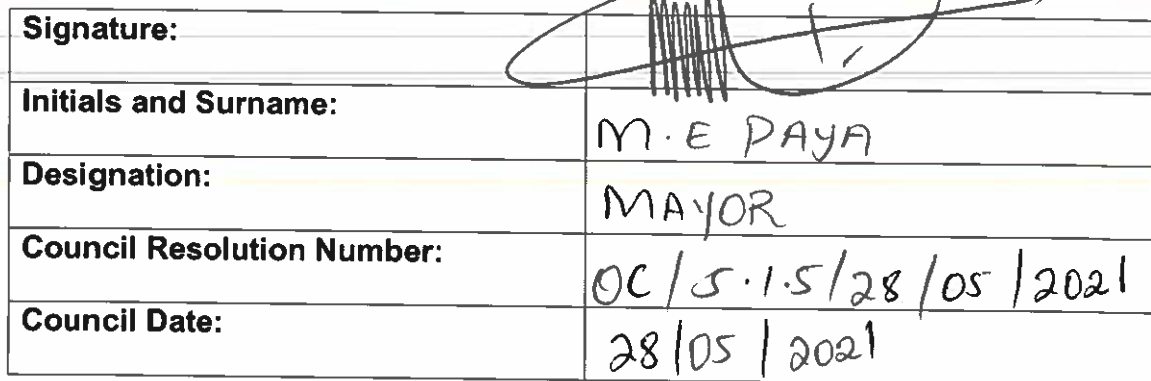 Signature:
Initials and Surname: M.E PAYA
Designation: MAYOR
Council Resolution Number: OC/5.1.5/28/05/2021
Council Date: 28/05/2021